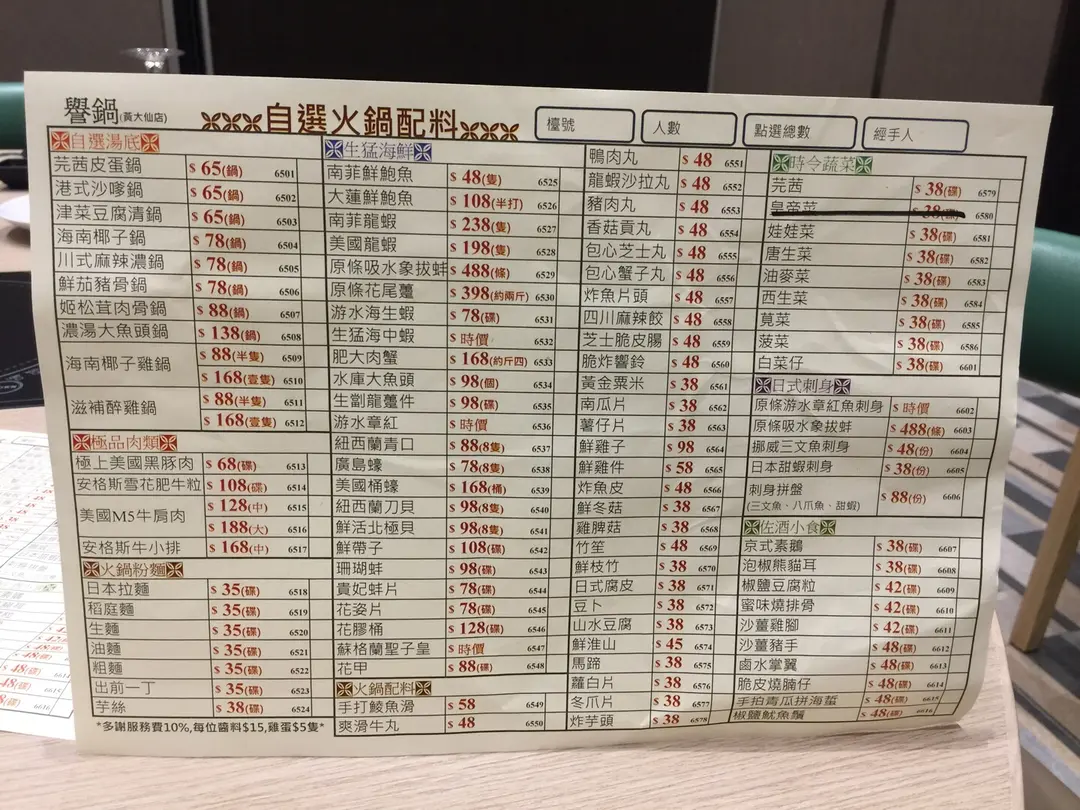 譽鍋(黃大仙店)
自選火鍋配料
檯號
人數
點選總數
經手人
自選湯底
芫茜皮蛋鍋 $ 65(鍋) 6501
港式沙嗲鍋 $ 65(鍋) 6502
津菜豆腐清鍋 $ 65(鍋) 6503
海南椰子鍋 $ 78(鍋) 6504
川式麻辣濃鍋 $ 78(鍋) 6505
鮮茄豬骨鍋 $ 78(鍋) 6506
姬松茸肉骨鍋 $ 88(鍋) 6507
濃湯大魚頭鍋 $ 138(鍋) 6508
海南椰子雞鍋 $ 88(半隻) 6509
$ 168(壹隻) 6510
滋補醉雞鍋 $ 88(半隻) 6511
$ 168(壹隻) 6512
極品肉類
極上美國黑豚肉 $ 68(碟) 6513
安格斯雪花肥牛粒 $ 108(碟) 6514
美國M5牛肩肉 $ 128(中) 6515
$ 188(大) 6516
安格斯牛小排 $ 168(中) 6517
火鍋粉麵
日本拉麵 $ 35(碟) 6518
稻庭麵 $ 35(碟) 6519
生麵 $ 35(碟) 6520
油麵 $ 35(碟) 6521
粗麵 $ 35(碟) 6522
出前一丁 $ 35(碟) 6523
芋絲 $ 38(碟) 6524
*多謝服務費10%,每位醬料$15,雞蛋$5隻*
生猛海鮮
南菲鮮鮑魚 $ 48(隻) 6525
大蓮鮮鮑魚 $ 108(半打) 6526
南菲龍蝦 $ 238(隻) 6527
美國龍蝦 $ 198(隻) 6528
原條吸水象拔蚌 $ 488(條) 6529
原條花尾躉 $ 398(約兩斤) 6530
游水海生蝦 $ 78(碟) 6531
生猛海中蝦 $ 時價 6532
肥大肉蟹 $ 168(約斤四) 6533
水庫大魚頭 $ 98(個) 6534
生劏龍躉件 $ 98(碟) 6535
游水章紅 $ 時價 6536
紐西蘭青口 $ 88(8隻) 6537
廣島蠔 $ 78(8隻) 6538
美國桶蠔 $ 168(桶) 6539
紐西蘭刀貝 $ 98(8隻) 6540
鮮活北極貝 $ 98(8隻) 6541
鮮帶子 $ 108(碟) 6542
珊瑚蚌 $ 98(碟) 6543
貴妃蚌片 $ 78(碟) 6544
花姿片 $ 78(碟) 6545
花膠桶 $ 128(碟) 6546
蘇格蘭聖子皇 $ 時價 6547
花甲 $ 88(碟) 6548
火鍋配料
手打鯪魚滑 $ 58 6549
爽滑牛丸 $ 48 6550
鴨肉丸 $ 48 6551
龍蝦沙拉丸 $ 48 6552
豬肉丸 $ 48 6553
香菇貢丸 $ 48 6554
包心芝士丸 $ 48 6555
包心蟹子丸 $ 48 6556
炸魚片頭 $ 48 6557
四川麻辣餃 $ 48 6558
芝士脆皮腸 $ 48 6559
脆炸響鈴 $ 48 6560
黃金粟米 $ 38 6561
南瓜片 $ 38 6562
薯仔片 $ 38 6563
鮮雞子 $ 98 6564
鮮雞件 $ 58 6565
炸魚皮 $ 48 6566
鮮冬菇 $ 38 6567
雞脾菇 $ 38 6568
竹笙 $ 48 6569
鮮枝竹 $ 38 6570
日式腐皮 $ 38 6571
豆卜 $ 38 6572
山水豆腐 $ 38 6573
鮮淮山 $ 45 6574
馬蹄 $ 38 6575
蘿白片 $ 38 6576
冬爪片 $ 38 6577
炸芋頭 $ 38 6578
時令蔬菜
芫茜 $ 38(碟) 6579
皇帝菜 $ 38(碟) 6580
娃娃菜 $ 38(碟) 6581
唐生菜 $ 38(碟) 6582
油麥菜 $ 38(碟) 6583
西生菜 $ 38(碟) 6584
莧菜 $ 38(碟) 6585
菠菜 $ 38(碟) 6586
白菜仔 $ 38(碟) 6601
日式刺身
原條游水章紅魚刺身 $ 時價 6602
原條吸水象拔蚌 $ 488(條) 6603
挪威三文魚刺身 $ 48(份) 6604
日本甜蝦刺身 $ 38(份) 6605
刺身拼盤 $ 88(份) 6606
(三文魚、八爪魚、甜蝦)
佐酒小食
京式素鵝 $ 38(碟) 6607
泡椒熊貓耳 $ 38(碟) 6608
椒鹽豆腐粒 $ 42(碟) 6609
蜜味燒排骨 $ 42(碟) 6610
沙薑雞腳 $ 42(碟) 6611
沙薑豬手 $ 48(碟) 6612
鹵水掌翼 $ 48(碟) 6613
脆皮燒腩仔 $ 48(碟) 6614
手拍青瓜拼海蜇 $ 48(碟) 6615
椒鹽魷魚鬚 $ 48(碟) 6616